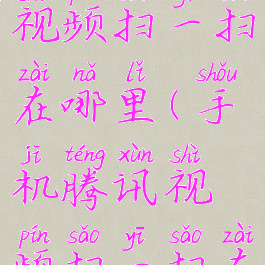 视频扫一扫
zài nǎ lǐ shǒu
在哪里(手
jī téng xùn shì
机腾讯视
pín sǎo yī sǎo zài
频扫一扫在